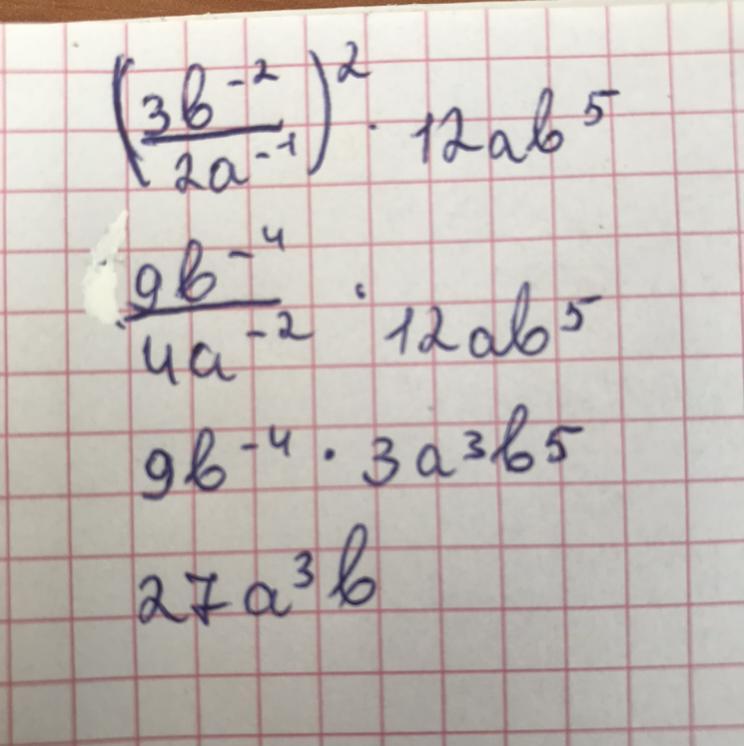 (3b⁻²/2a⁻¹)² · 12ab⁵
9b⁻⁴/4a⁻² · 12ab⁵
9b⁻⁴ · 3a³b⁵
27a³b